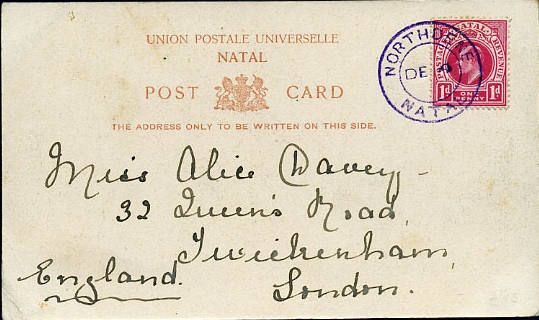 UNION POSTALE UNIVERSELLE
NATAL
POST CARD
THE ADDRESS ONLY TO BE WRITTEN ON THIS SIDE.
NATAL
POSTAGE REVENUE
1d ONE PENNY 1d
NORTHDENE
DE
NATAL
Miss Alice Davey
32 Queen's Road,
Twickenham,
England. London.